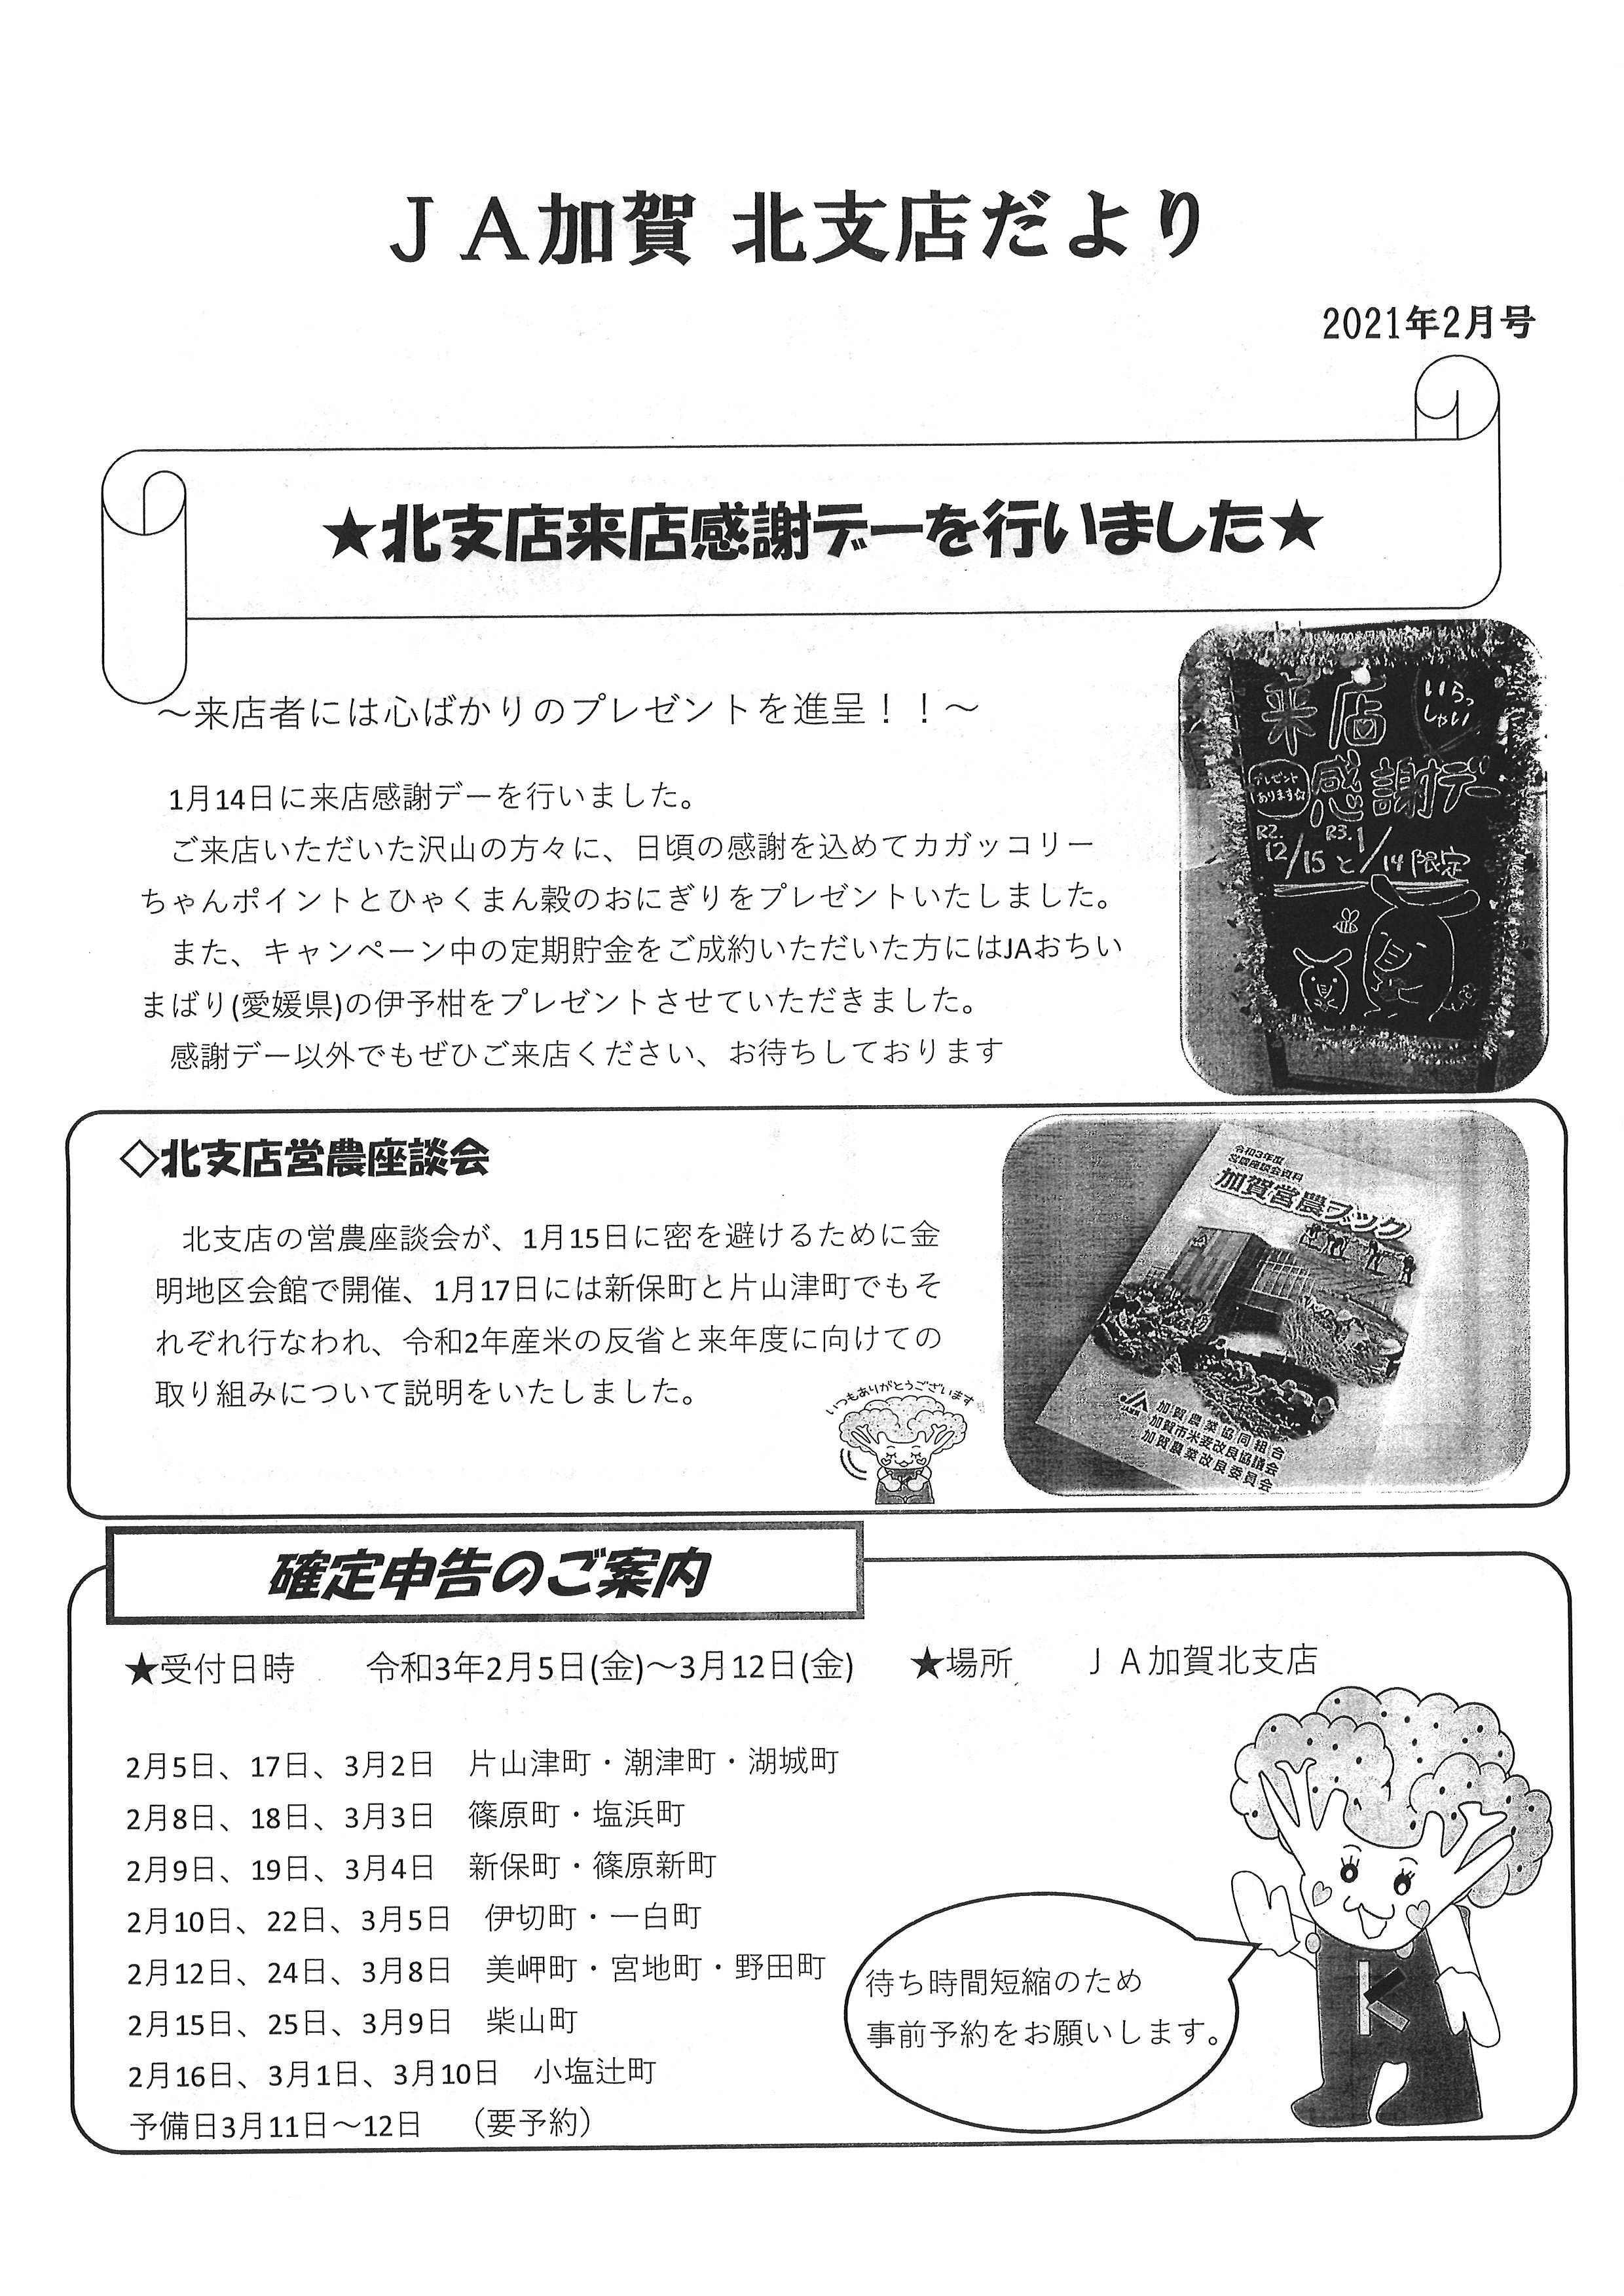 ＪＡ加賀 北支店だより
2021年2月号
★北支店来店感謝デーを行いました★
～来店者には心ばかりのプレゼントを進呈！！～
1月14日に来店感謝デーを行いました。
ご来店いただいた沢山の方々に、日頃の感謝を込めてカガッコリー
ちゃんポイントとひゃくまん穀のおにぎりをプレゼントいたしました。
また、キャンペーン中の定期貯金をご成約いただいた方にはJAおちい
まばり(愛媛県)の伊予柑をプレゼントさせていただきました。
感謝デー以外でもぜひご来店ください、お待ちしております
来店
いらっ
しゃい
プレゼント
あります☆
感謝デー
R2.
12/15と
R3.1
/14限定
◇北支店営農座談会
北支店の営農座談会が、1月15日に密を避けるために金
明地区会館で開催、1月17日には新保町と片山津町でもそ
れぞれ行なわれ、令和2年産米の反省と来年度に向けての
取り組みについて説明をいたしました。
いつもありがとうございます
令和3年度
営農座談会資料
加賀営農ブック
JA
加賀農業協同組合
加賀市米麦改良協議会
加賀農業改良委員会
確定申告のご案内
★受付日時 令和3年2月5日(金)～3月12日(金) ★場所 ＪＡ加賀北支店
2月5日、17日、3月2日 片山津町・潮津町・湖城町
2月8日、18日、3月3日 篠原町・塩浜町
2月9日、19日、3月4日 新保町・篠原新町
2月10日、22日、3月5日 伊切町・一白町
2月12日、24日、3月8日 美岬町・宮地町・野田町
2月15日、25日、3月9日 柴山町
2月16日、3月1日、3月10日 小塩辻町
予備日3月11日～12日 （要予約）
待ち時間短縮のため
事前予約をお願いします。
K